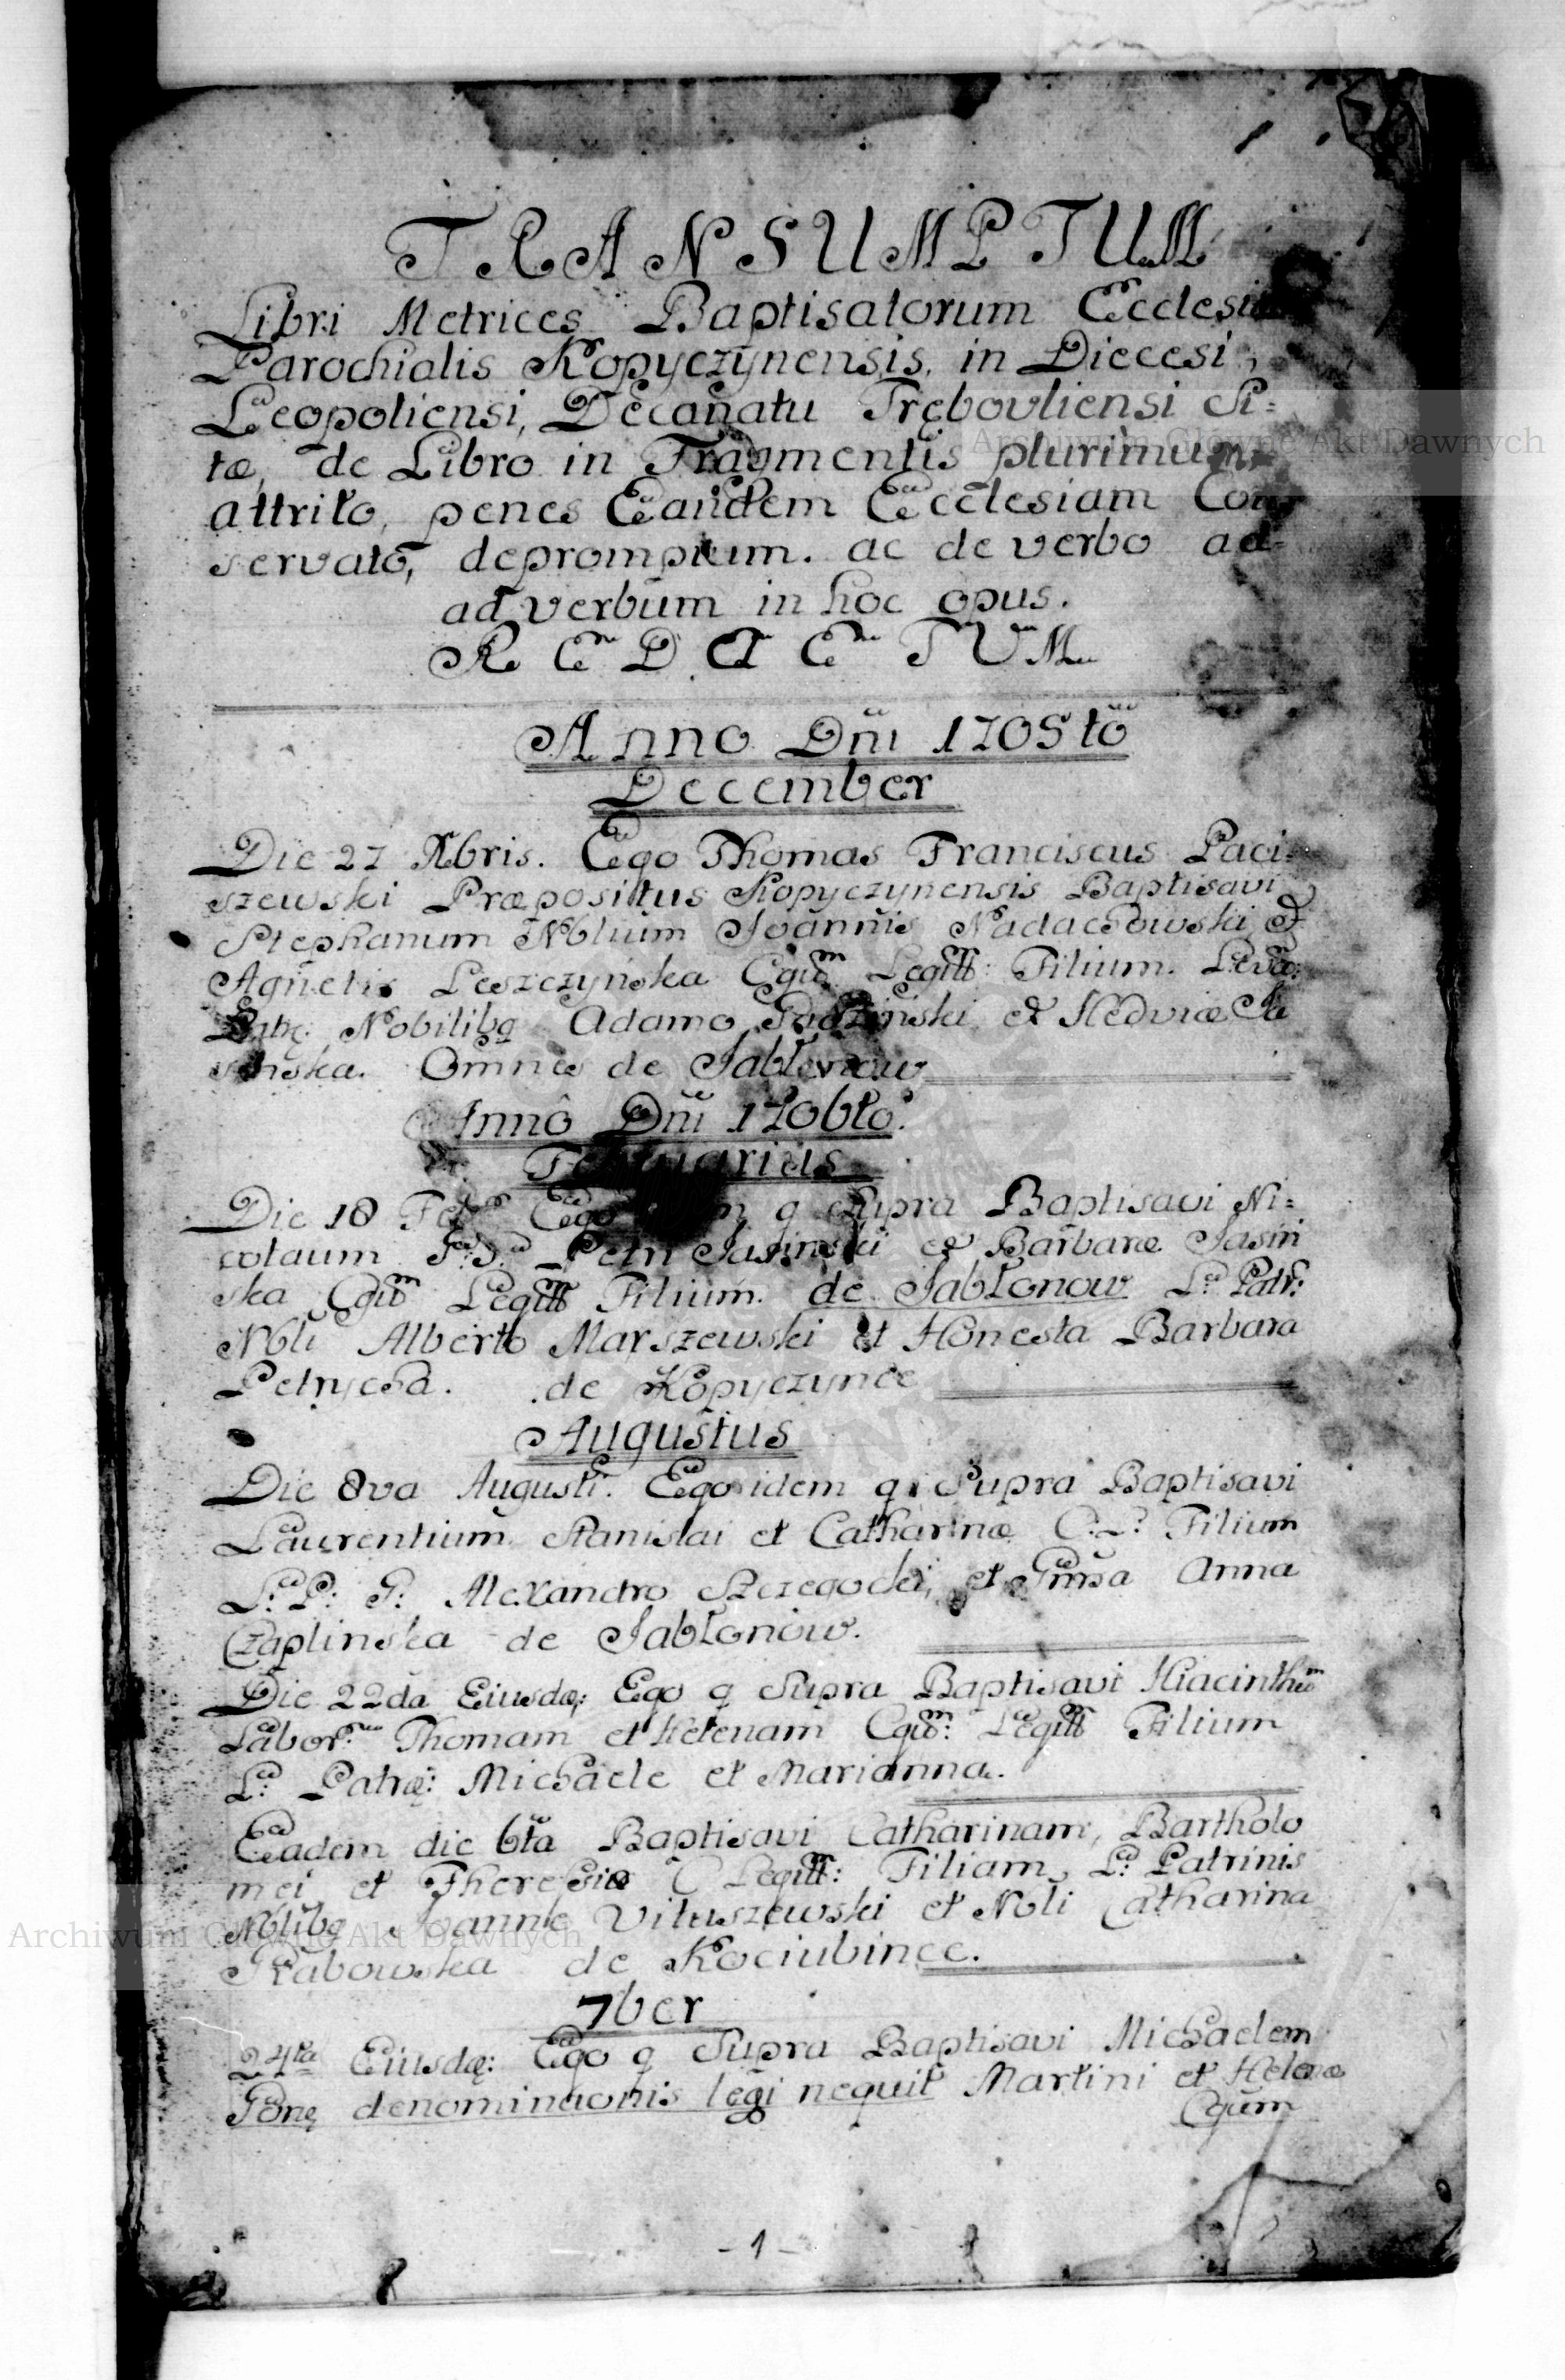 TRANSUMPTUM
Libri Metrices Baptisatorum Ecclesiæ
Parochialis Kopyczynensis, in Diecesi,
Leopoliensi, Decanatu Trębovliensi Si=
tæ, de Libro in Fragmentis plurimum
attrito, penes Eandem Ecclesiam Con
servato, depromptum. ac de verbo ad=
ad verbum in hoc opus.
REDACTUM
Anno Dñi 1705to
December
Die 27 Xbris. Ego Thomas Franciscus Paci=
szewski Præpositus Kopyczynensis Baptisavi
Stephanum Nblium Joannis Nadachowski &
Agnetis Leszczyńska Cgum Legitt: Filium. Leva:
Nobilibq Adamo et Hedviæ
Omnes de Jabłonow
Anno Dñi 1706to.
Februarius
Die 18 Ego q Supra Baptisavi Ni=
colaum Petri Jasinski et Barbaræ Jasin
ska Cgum Legitt Filium. de Jabłonow L: Patr:
Nbli Alberto Marszewski et Honesta Barbara
Petrycha. de Kopyczynce
Augustus
Die 8va Augusti. Ego idem q Supra Baptisavi
Laurentium Stanislai et Catharinæ C:L: Filium
L:P: G: Alexandro et Anna
Czaplinska de Jabłonow.
Die 22da Eiusdę: Ego q Supra Baptisavi Hiacinthum
Labor: Thomam et Helenam Cgum: Legitt Filium
L: Patrę: Michaele et Marianna.
Eadem die 6ta Baptisavi Catharinam, Bartholo
mei et Theresiæ C Legitt: Filiam, L: Patrinis
Nblibq Joanne Vituszewski et Nbli Catharina
Grabowska de Kociubince.
7ber
24ta Eiusdę: Ego q Supra Baptisavi Michaelem
denominaonis legi nequit Martini et Helenæ
Cgum
- 1 -
Archiwum Główne Akt Dawnych
Archiwum Główne Akt Dawnych